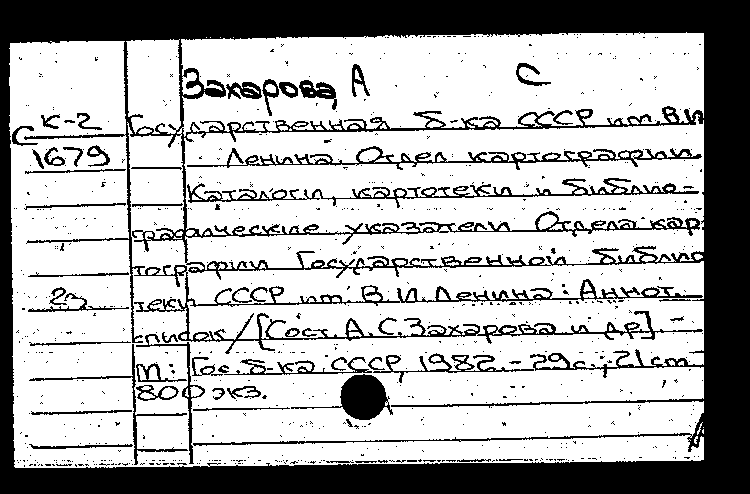 Захарова, А С
С К-2
1679
Государственная б-ка СССР им. В.И
Ленина. Отдел картографии.
Каталоги, картотеки и библио-
графические указатели Отдела кар-
тографии Государственной библио
23
теки СССР им. В.И. Ленина: Аннот.
список / [Сост. А.С. Захарова и др]. -
М.: Гос. б-ка СССР, 1982. - 29с.; 21 см -
800 экз.